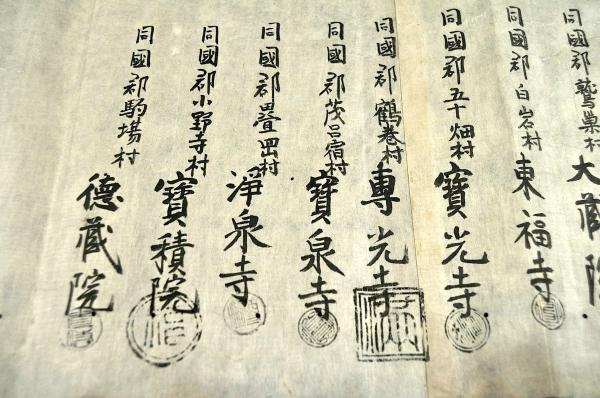 同國郡鷲巣村
大蔵院
同國郡白岩村
東福寺
同國郡五十畑村
寶光寺
同國郡鶴巻村
專光寺
同國郡茂呂宿村
寶泉寺
同國郡疊岡村
淨泉寺
同國郡小野寺村
寶積院
同國郡駒場村
德蔵院